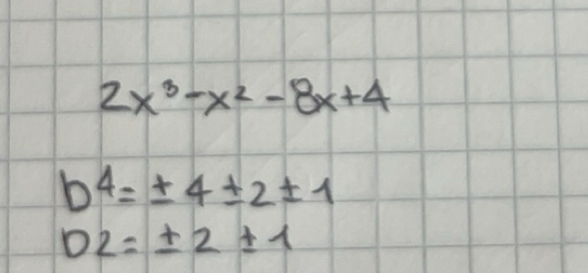 2x³-x²-8x+4
D4=±4±2±1
D2=±2±1